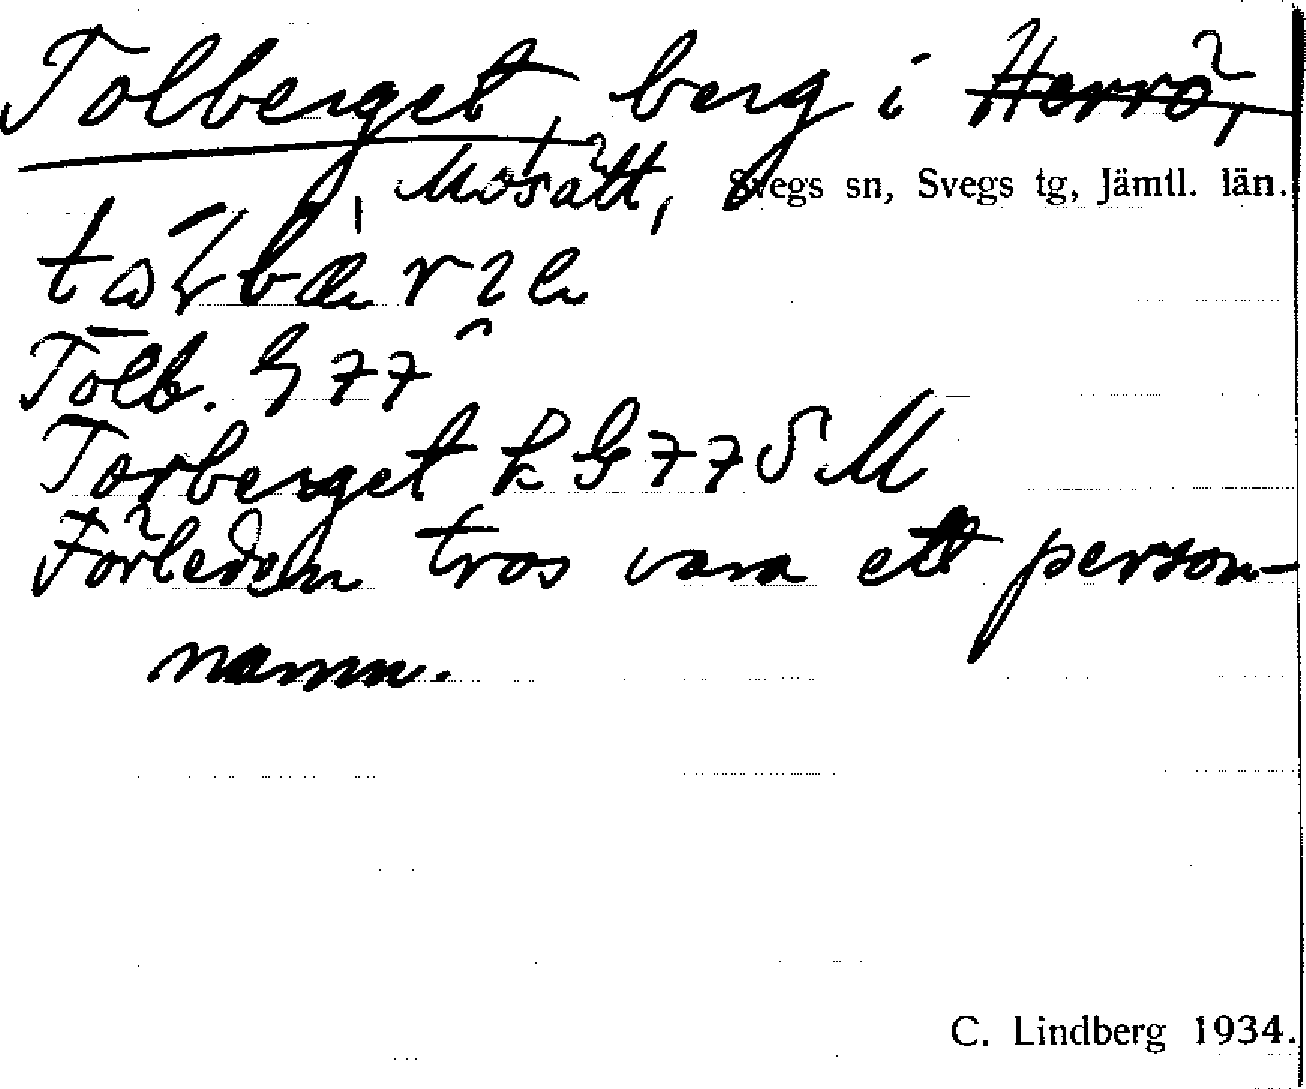 Tolberget, berg i Herrö,
Mosätt, Svegs sn, Svegs tg, Jämtl. län.
Tolb. G 77
Torberget k G 77 S M
Förleden tros vara ett person-
namn.
C. Lindberg 1934.